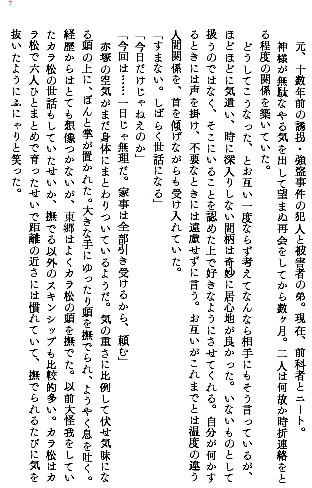 7
元、十数年前の誘拐・強盗事件の犯人と被害者の弟。現在、前科者とニート。
神様が無駄なやる気を出して望まぬ再会をしてから数ヶ月。二人は何故か時折連絡をと
る程度の関係を築いていた。
どうしてこうなった、とお互い一度ならず考えてなんなら相手にもそう言っているが、
ほどほどに気遣い、時に深入りしない間柄は奇妙に居心地が良かった。いないものとして
扱うのではなく、そこにいることを認めた上で好きなようにさせてくれる。自分が何かす
るときには声を掛け、不要なときには遠慮せずに言う。お互いがこれまでとは温度の違う
人間関係を、首を傾げながらも受け入れていた。
「すまない。しばらく世話になる」
「今日だけじゃねえのか」
「今回は……一日じゃ無理だ。家事は全部引き受けるから、頼む」
赤塚の空気がまだ身体にまとわりついているようだ。気の重さに比例して伏せ気味にな
る頭の上に、ぽんと掌が置かれた。大きな手にゆったり頭を撫でられ、ようやく息を吐く。
経歴からはとても想像つかないが、東郷はよくカラ松の頭を撫でた。以前大怪我をしてい
たカラ松の世話もしていたせいか、撫でる以外のスキンシップも比較的多い。カラ松はカ
ラ松で六人ひとまとめで育ったせいで距離の近さには慣れていて、撫でられるたびに気を
抜いたようにふにゃりと笑った。